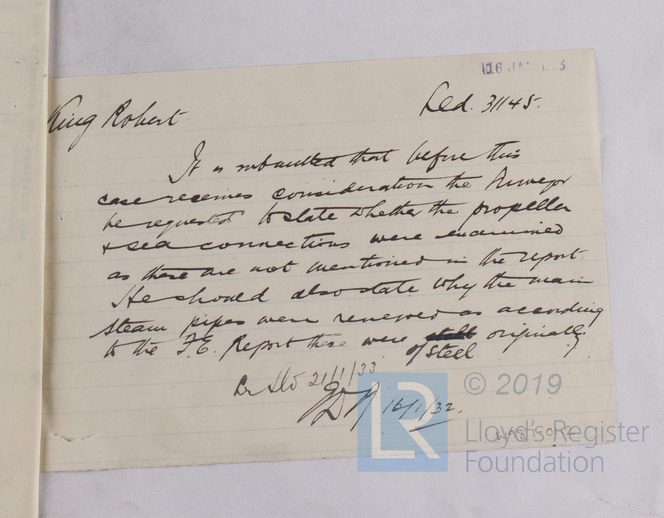 King Robert
Led. 31145.
It is submitted that before this
case receives consideration the Surveyor
be requested to state whether the propeller
& sea connections were examined
as these are not mentioned in the report.
He should also state why the main
steam pipes were renewed as according
to the F.E. Report these were of steel originally.
21/1/33
16/1/32.
© 2019
LR
Lloyd's Register
Foundation